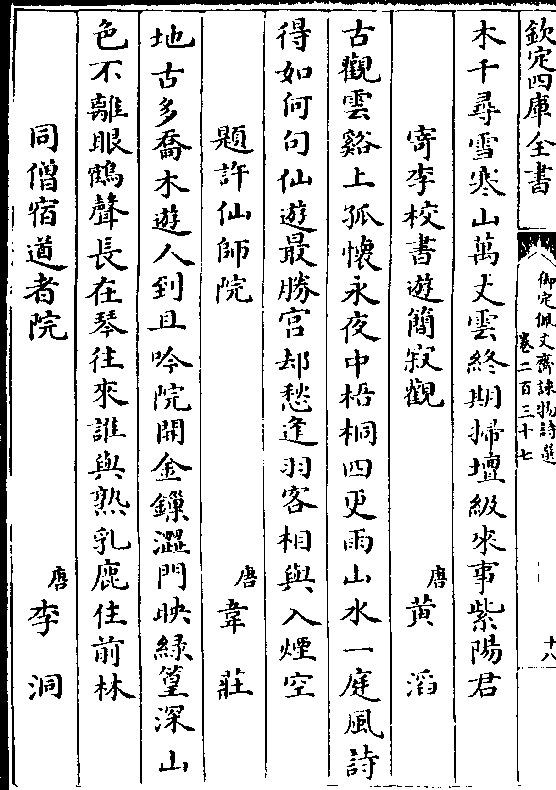 欽定四庫全書
御定佩文齋詠物詩選
卷二百三十七
十八
木千尋雪寒山萬丈雲終期掃壇級來事紫陽君
寄李校書遊簡寂觀 唐 黃滔
古觀雲谿上孤懷永夜中梧桐四更雨山水一庭風詩
得如何句仙遊最勝宮却愁逢羽客相與入煙空
題許仙師院 唐 韋莊
地古多喬木遊人到且吟院開金鏁澀門映綠篁深山
色不離眼鶴聲長在琴往來誰與熟乳鹿住前林
同僧宿道者院 唐 李洞